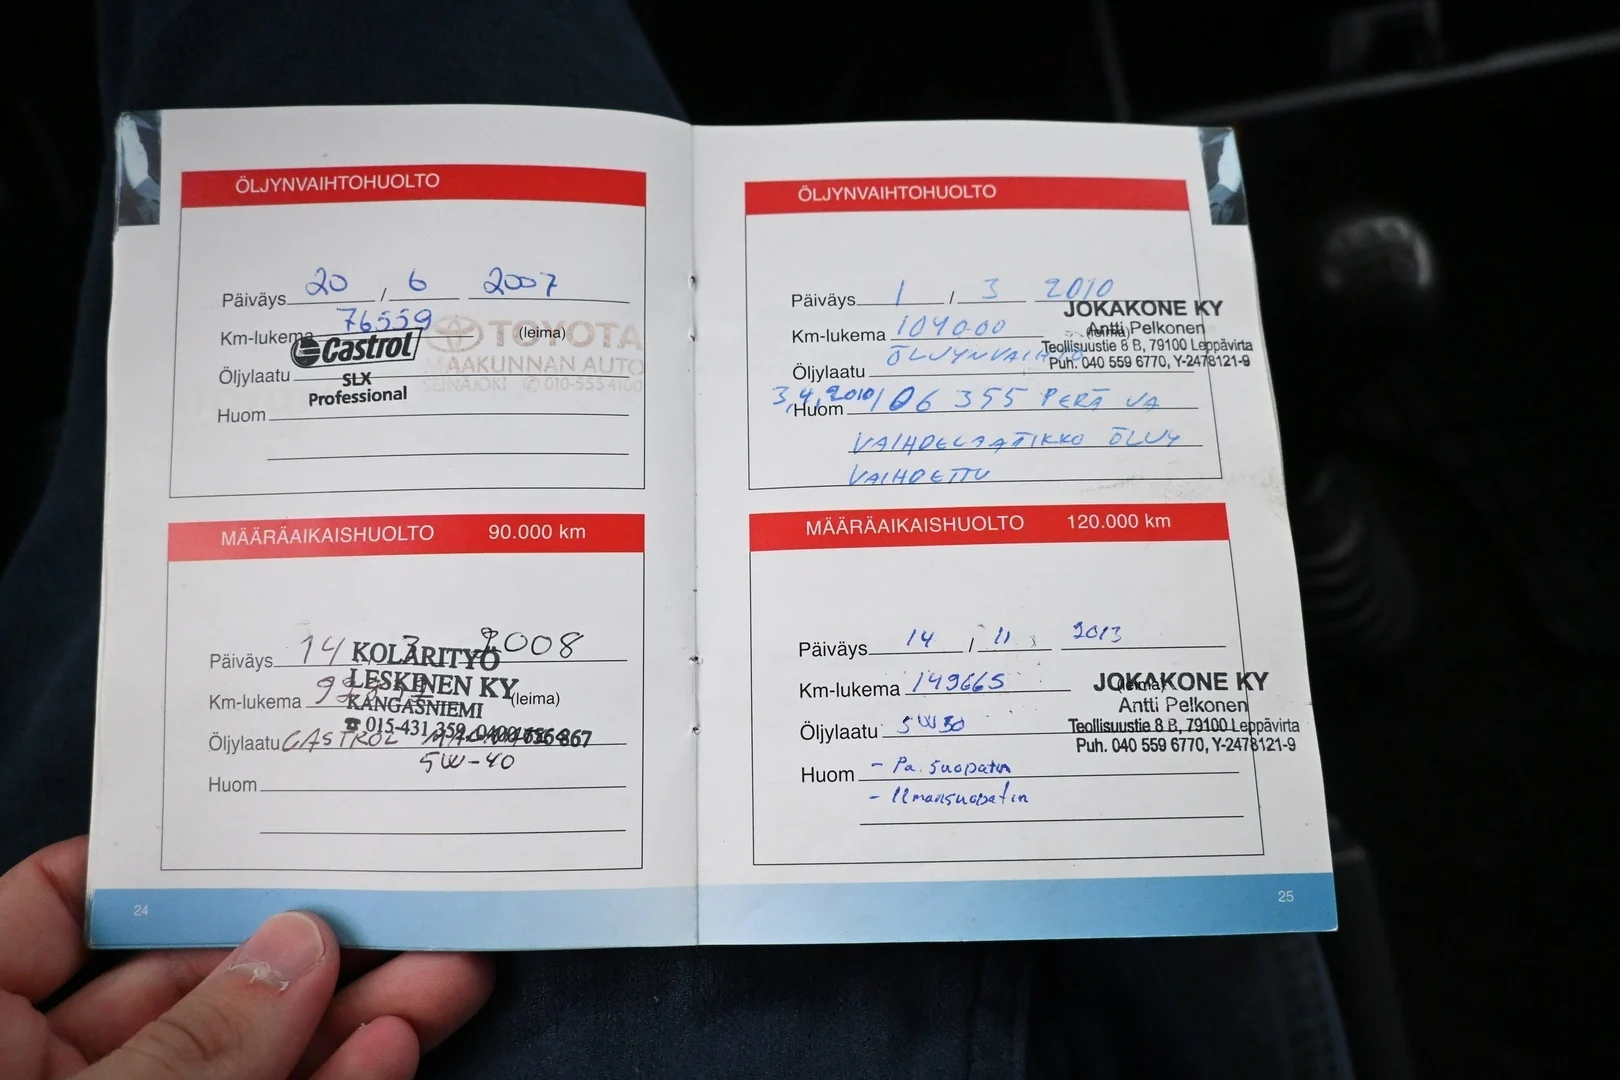 ÖLJYNVAIHTOHUOLTO
Päiväys 20 / 6 2007
Km-lukema 76559 (leima)
TOYOTA
MAAKUNNAN AUTO
SEINÄJOKI 010-555 4100
Castrol
Öljylaatu SLX
Professional
Huom
MÄÄRÄAIKAISHUOLTO 90.000 km
Päiväys 14 3 2008
KOLARITYÖ
LESKINEN KY
Km-lukema (leima)
KANGASNIEMI
☎ 015-431 359, 0400-656 867
Öljylaatu CASTROL
5W-40
Huom
24
ÖLJYNVAIHTOHUOLTO
Päiväys 1 / 3 2010
JOKAKONE KY
Km-lukema 104000 (leima)
Antti Pelkonen
Teollisuustie 8 B, 79100 Leppävirta
Puh. 040 559 6770, Y-2478121-9
ÖLJYNVAIHTO
Öljylaatu
3,4,2010 / 106 355 PERÄ JA
Huom
VAIHDELAATIKKO ÖLJY
VAIHDETTU
MÄÄRÄAIKAISHUOLTO 120.000 km
Päiväys 14 / 11 2013
Km-lukema 149665 (leima)
JOKAKONE KY
Antti Pelkonen
Öljylaatu 5W30
Teollisuustie 8 B, 79100 Leppävirta
Puh. 040 559 6770, Y-2478121-9
Huom - Pa. suodatin
- Ilmansuodatin
25